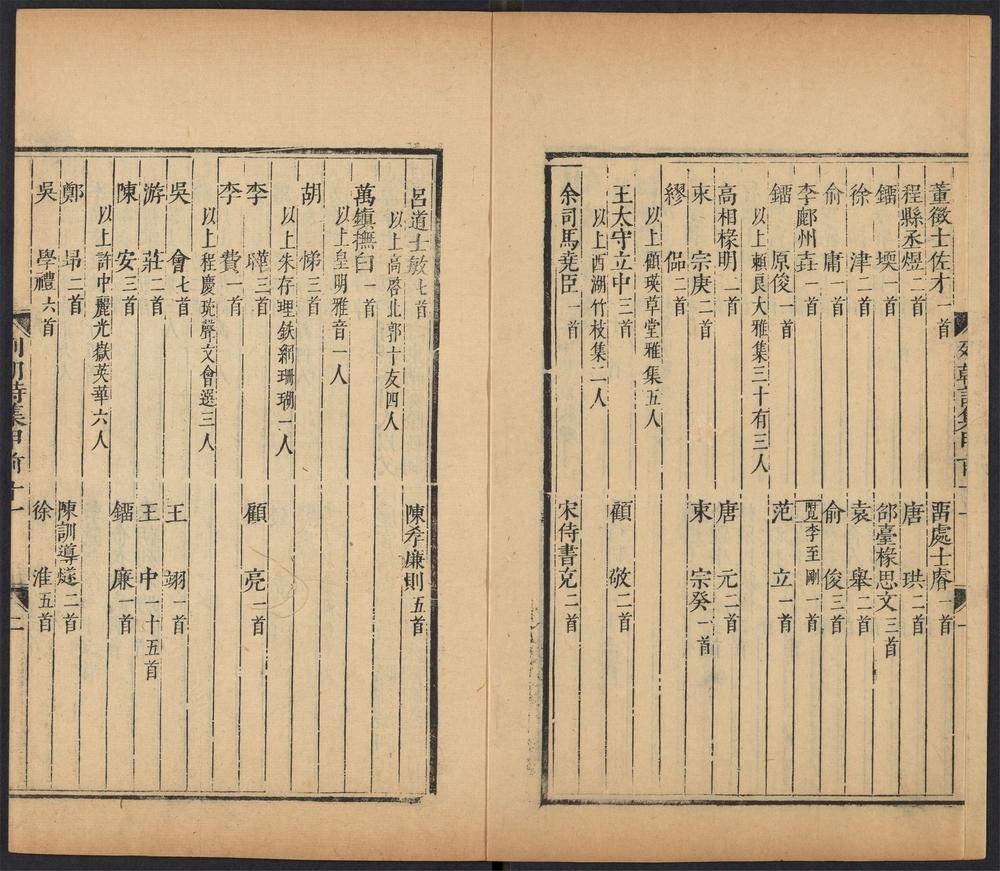 董徵士佐才一首　　畱處士睿一首
程縣丞煜二首　　唐珙二首
鐂堧一首　　邰臺椽思文三首
徐津二首　　袁舉二首
俞庸一首　　俞俊三首
李郿州垚一首　　李至剛一首
鐂原俊一首　　范立一首
以上賴良大雅集三十有三人
高相椽明一首　　唐元二首
束宗庚二首　　束宗癸一首
繆侣二首
以上顧瑛草堂雅集五人
王太守立中三首　　顧敬二首
以上西湖竹枝集二人
余司馬堯臣一首　　宋侍書克二首
呂道士敏七首　　陳孝廉則五首
以上高啓北郭十友四人
萬鎮撫白一首
以上皇明雅音一人
胡悌三首
以上朱存理鉄網珊瑚一人
李㬙三首　　顧亮二首
李費一首
以上程慶珫聲文會選三人
吳會七首　　王翊一首
游莊二首　　王中一十五首
陳安三首　　鐂廉一首
以上許中麗光嶽英華六人
鄭昻二首　　陳訓導燧二首
吳學禮六首　　徐淮五首
列朝詩集甲前十一　　二